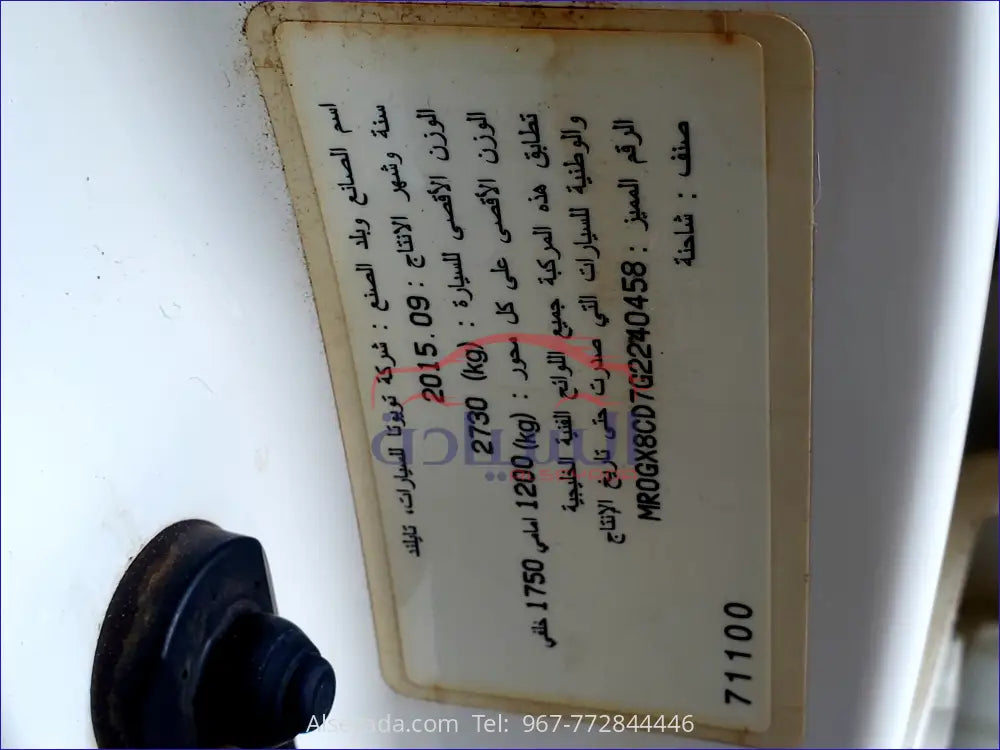 اسم الصانع وبلد الصنع : شركة تويوتا للسيارات، تايلند
سنة وشهر الانتاج : 2015.09
الوزن الأقصى للسيارة : 2730 (kg)
الوزن الأقصى على كل محور : (kg) 1200 امامي 1750 خلفي
تطابق هذه المركبة جميع اللوائح الفنية الخليجية
والوطنية للسيارات التي صدرت حتى تاريخ الإنتاج
الرقم المميز : MR0GX8CD7G2240458
صنف : شاحنة
71100
السيارة.com
Alseyada.com Tel: 967-772844446